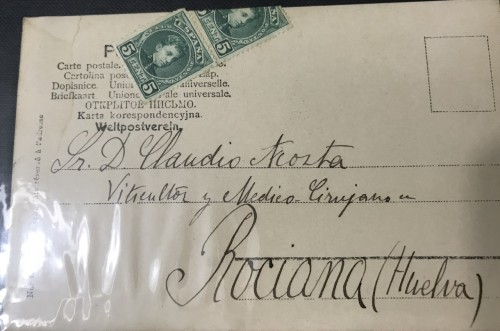 ESPAÑA
5 CENT. 5
5 5
P
Carte postale.
Cartolina pos ap.
Dopisnice . Union universelle.
Briefkaart . Union ale universale.
ОТКРЫТОЕ ПИСЬМО.
Karta korespondencyjna.
Weltpostverein.
Sr. D Claudio Acosta
Viticultor y Medico Cirujano en
Rociana (Huelva)